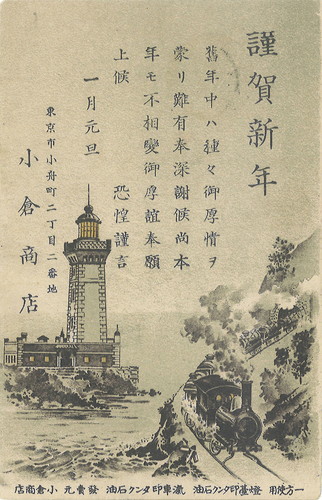 謹賀新年
舊年中ハ種々御厚情ヲ
蒙リ難有奉深謝候尚本
年モ不相變御厚誼奉願
上候　恐惶謹言
一月元旦
東京市小舟町二丁目二番地
小倉商店
一方使用 燈臺印タンク石油 瀛車印タンク石油 發賣元 小倉商店